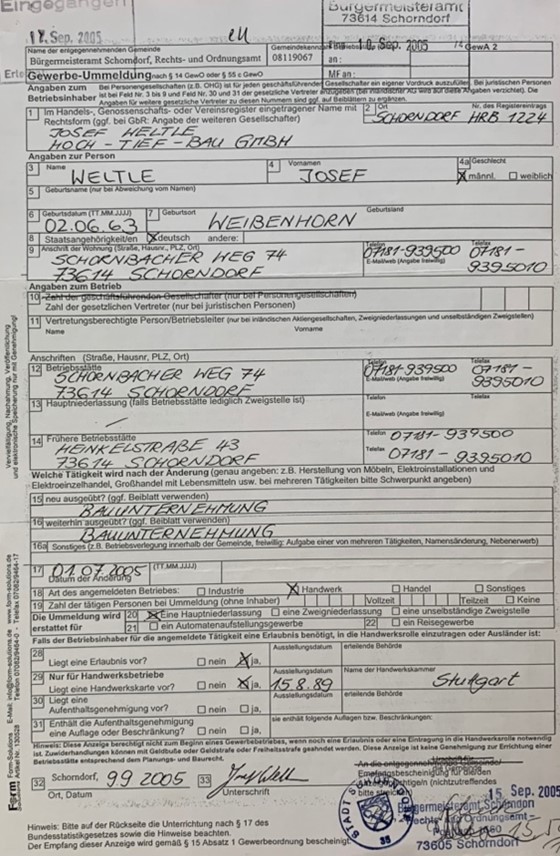 Eingegangen
12. Sep. 2005
eu
Bürgermeisteramt
73614 Schorndorf
Name der entgegennehmenden Gemeinde
Bürgermeisteramt Schorndorf, Rechts- und Ordnungsamt
08119067
10. Sep. 2005
GewA 2
an:
MFan:
Gewerbe-Ummeldung nach § 14 GewO oder § 55 c GewO
Angaben zum Betriebsinhaber
Bei Personengesellschaften (z.B. OHG) ist für jeden geschäftsführenden Gesellschafter ein eigener Vordruck auszufüllen. Bei juristischen Personen
ist bei Feld Nr. 3 bis 9 und Feld Nr. 30 und 31 der gesetzliche Vertreter anzugeben (bei inländischer AG wird auf diese Angaben verzichtet). Die
Angaben für weitere gesetzliche Vertreter zu diesen Nummern sind ggf. auf Beiblättern zu ergänzen.
1 Im Handels-, Genossenschafts- oder Vereinsregister eingetragener Name mit
Rechtsform (ggf. bei GbR: Angabe der weiteren Gesellschafter)
2 Ort, Nr. des Registereintrags
JOSEF WELTLE
HOCH-TIEF-BAU GMBH
SCHORNDORF HRB 1224
Angaben zur Person
3 Name
WELTLE
4 Vornamen
JOSEF
4a Geschlecht
X männl. weiblich
5 Geburtsname (nur bei Abweichung vom Namen)
6 Geburtsdatum (TT.MM.JJJJ)
02.06.63
7 Geburtsort
WEIßENHORN
Geburtsland
8 Staatsangehörigkeit/en X deutsch andere:
9 Anschrift der Wohnung (Straße, Hausnr., PLZ, Ort)
SCHORNBACHER WEG 74
73614 SCHORNDORF
07181-939500
E-Mail/web (Angabe freiwillig)
Telefax
07181-
9395010
Angaben zum Betrieb
10 Zahl der geschäftsführenden Gesellschafter (nur bei Personengesellschaften)
Zahl der gesetzlichen Vertreter (nur bei juristischen Personen)
11 Vertretungsberechtigte Person/Betriebsleiter (nur bei inländischen Aktiengesellschaften, Zweigniederlassungen und unselbständigen Zweigstellen)
Name Vorname
Anschriften (Straße, Hausnr, PLZ, Ort)
12 Betriebsstätte
SCHORNBACHER WEG 74
73614 SCHORNDORF
07181-939500
E-Mail/web (Angabe freiwillig)
Telefax
07181-
9395010
13 Hauptniederlassung (falls Betriebsstätte lediglich Zweigstelle ist)
Telefon
Telefax
E-Mail/web (Angabe freiwillig)
14 Frühere Betriebsstätte
HENKELSTRAßE 43
73614 SCHORNDORF
Telefon 07181-939500
Telefax 07181-9395010
Welche Tätigkeit wird nach der Änderung (genau angeben: z.B. Herstellung von Möbeln, Elektroinstallationen und
Elektroeinzelhandel, Großhandel mit Lebensmitteln usw. bei mehreren Tätigkeiten bitte Schwerpunkt angeben)
15 neu ausgeübt? (ggf. Beiblatt verwenden)
BAUUNTERNEHMUNG
16 weiterhin ausgeübt? (ggf. Beiblatt verwenden)
BAUUNTERNEHMUNG
16a Sonstiges (z.B. Betriebsverlegung innerhalb der Gemeinde, freiwillig: Aufgabe einer von mehreren Tätigkeiten, Namensänderung, Nebenerwerb)
17 01.07.2005 (TT.MM.JJJJ)
Datum der Änderung
18 Art des angemeldeten Betriebes: Industrie X Handwerk Handel Sonstiges
19 Zahl der tätigen Personen bei Ummeldung (ohne Inhaber) Vollzeit Teilzeit Keine
Die Ummeldung wird erstattet für
20 X Eine Hauptniederlassung eine Zweigniederlassung eine unselbständige Zweigstelle
21 ein Automatenaufstellungsgewerbe 22 ein Reisegewerbe
Falls der Betriebsinhaber für die angemeldete Tätigkeit eine Erlaubnis benötigt, in die Handwerksrolle einzutragen oder Ausländer ist:
28 Liegt eine Erlaubnis vor? nein X ja,
Ausstellungsdatum erteilende Behörde
29 Nur für Handwerksbetriebe
Liegt eine Handwerkskarte vor? nein X ja,
Ausstellungsdatum
15.8.89
Name der Handwerkskammer
Stuttgart
30 Liegt eine
Aufenthaltsgenehmigung vor? nein ja,
Ausstellungsdatum erteilende Behörde
31 Enthält die Aufenthaltsgenehmigung
eine Auflage oder Beschränkung? nein ja,
sie enthält folgende Auflagen bzw. Beschränkungen:
Hinweis: Diese Anzeige berechtigt nicht zum Beginn eines Gewerbebetriebes, wenn noch eine Erlaubnis oder eine Eintragung in die Handwerksrolle notwendig
ist. Zuwiderhandlungen können mit Geldbuße oder Geldstrafe oder Freiheitsstrafe geahndet werden. Diese Anzeige ist keine Genehmigung zur Errichtung einer
Betriebsstätte entsprechend dem Planungs- und Baurecht.
32 Schorndorf, 9.9.2005
Ort, Datum
33
Unterschrift
15. Sep. 2005
Bürgermeisteramt Schorndorf
73605 Schorndorf
STADT
35
Hinweis: Bitte auf der Rückseite die Unterrichtung nach § 17 des
Bundesstatistikgesetzes sowie die Hinweise beachten.
Der Empfang dieser Anzeige wird gemäß § 15 Absatz 1 Gewerbeordnung bescheinigt.
Vervielfältigung, Nachahmung, Veröffentlichung
und elektronische Speicherung nur mit Genehmigung!
Form Form-Solutions E-Mail: info@form-solutions.de www.form-solutions.de